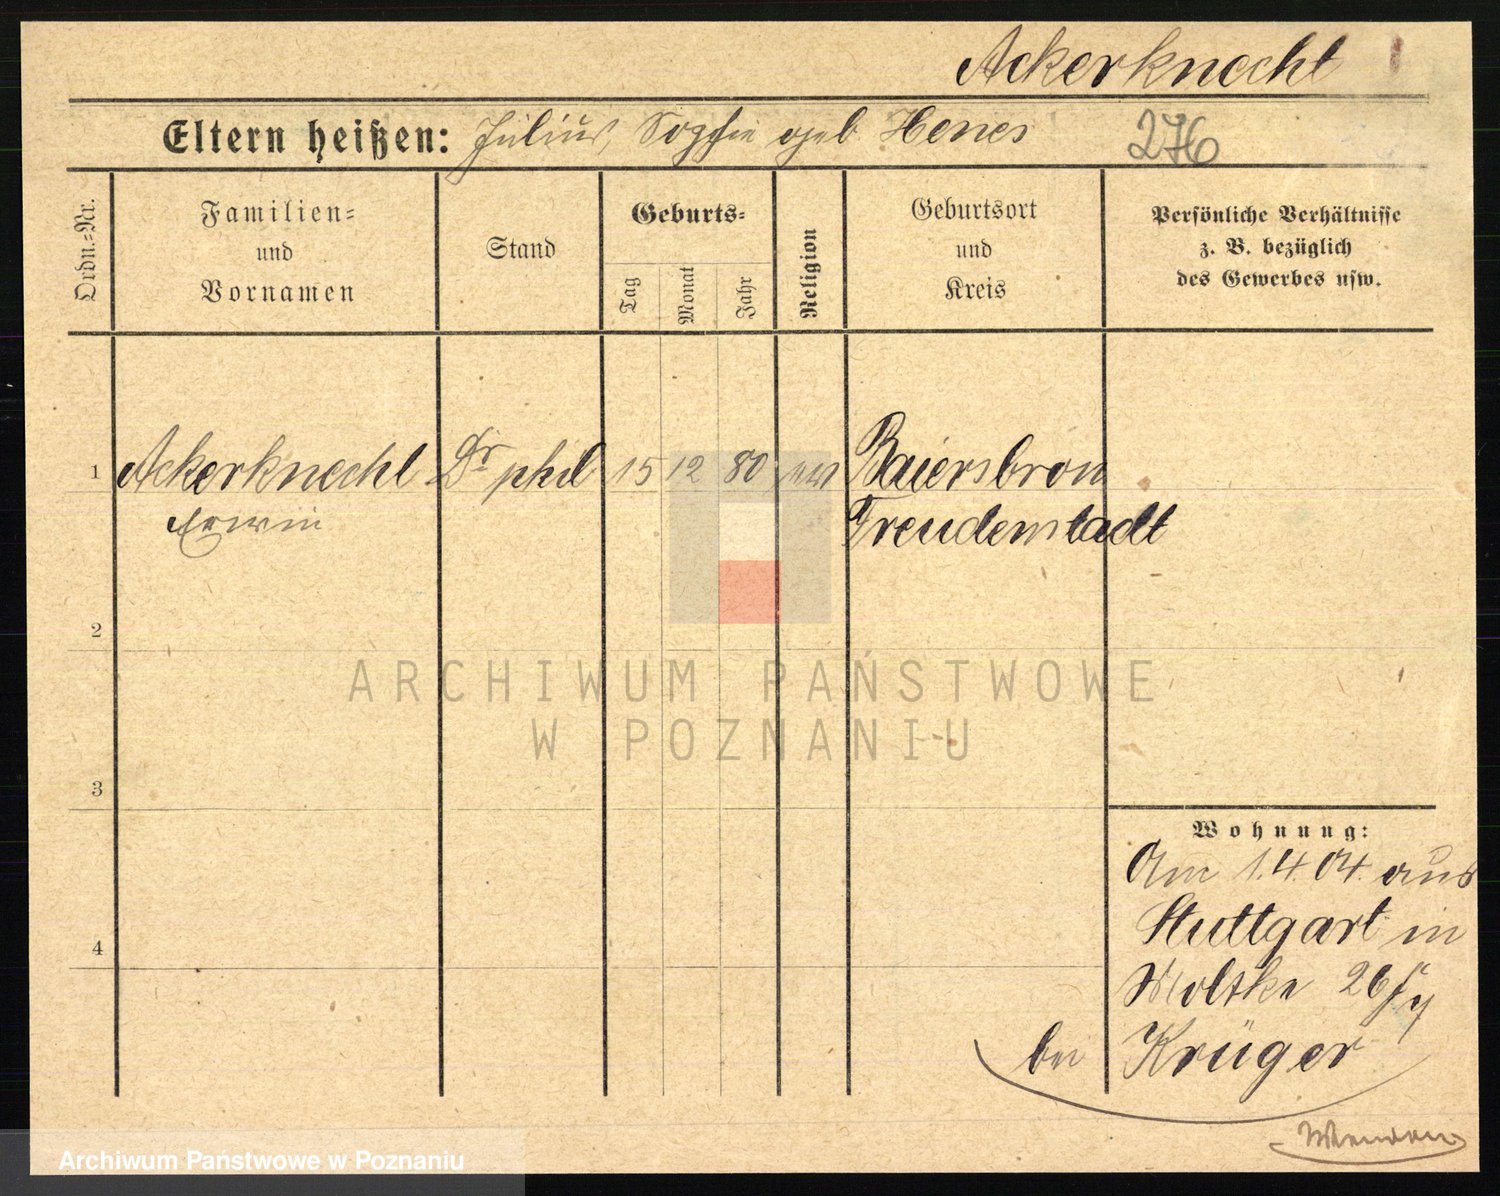 Ackerknecht
Eltern heißen: Julius, Sophie geb Henes 276
Ordn.=Nr.
Familien=
und
Vornamen
Stand
Geburts=
Tag
Monat
Jahr
Religion
Geburtsort
und
Kreis
Persönliche Verhältnisse
z. B. bezüglich
des Gewerbes usw.
1 Ackerknecht Dr phil 15 12 80 ev Baiersbron
Erwin Freudenstadt
2
3
4
ARCHIWUM PAŃSTWOWE
W POZNANIU
Wohnung:
Am 1.4.04. aus
Stuttgart in
Moltke 26
bei Krüger
Wenden
Archiwum Państwowe w Poznaniu